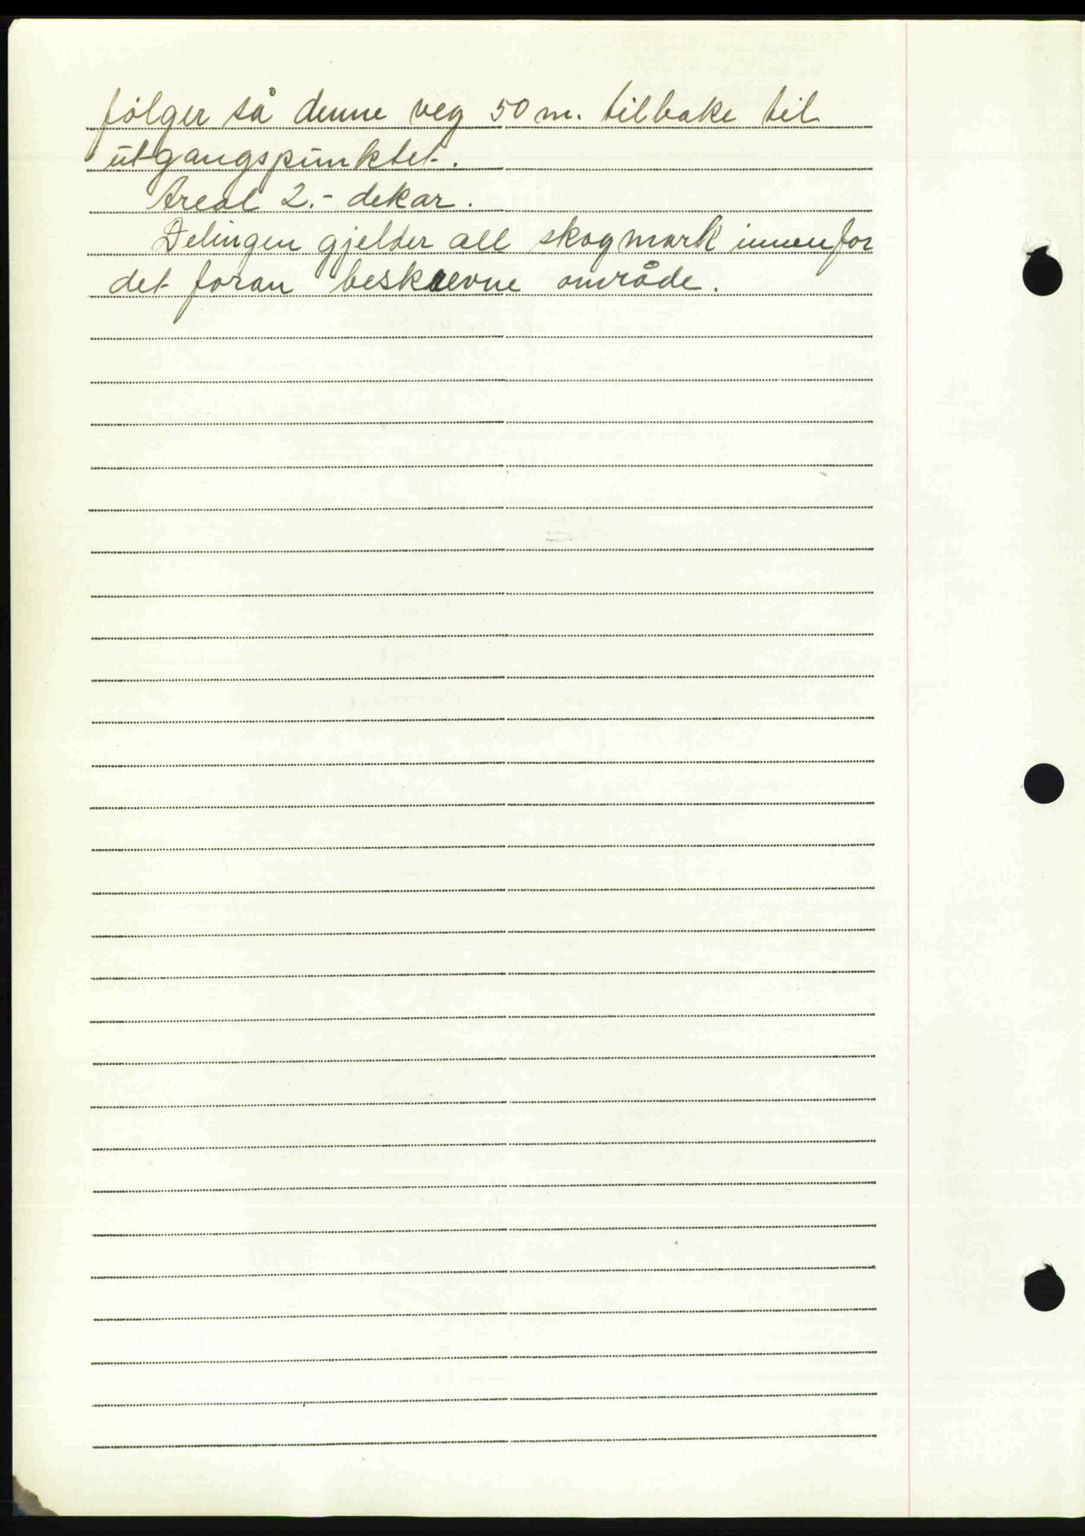 følger så denne veg 50 m. tilbake til
utgangspunktet.
Areal 2.- dekar.
Delingen gjelder all skogmark innenfor
det foran beskrevne område.